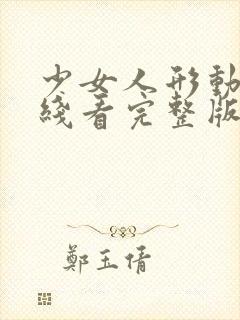 少女人形動
綫看完整版
鄭玉倩